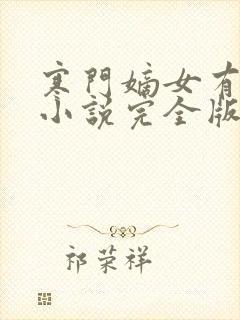 寒門嫡女有
小說完全版
祁荣祥